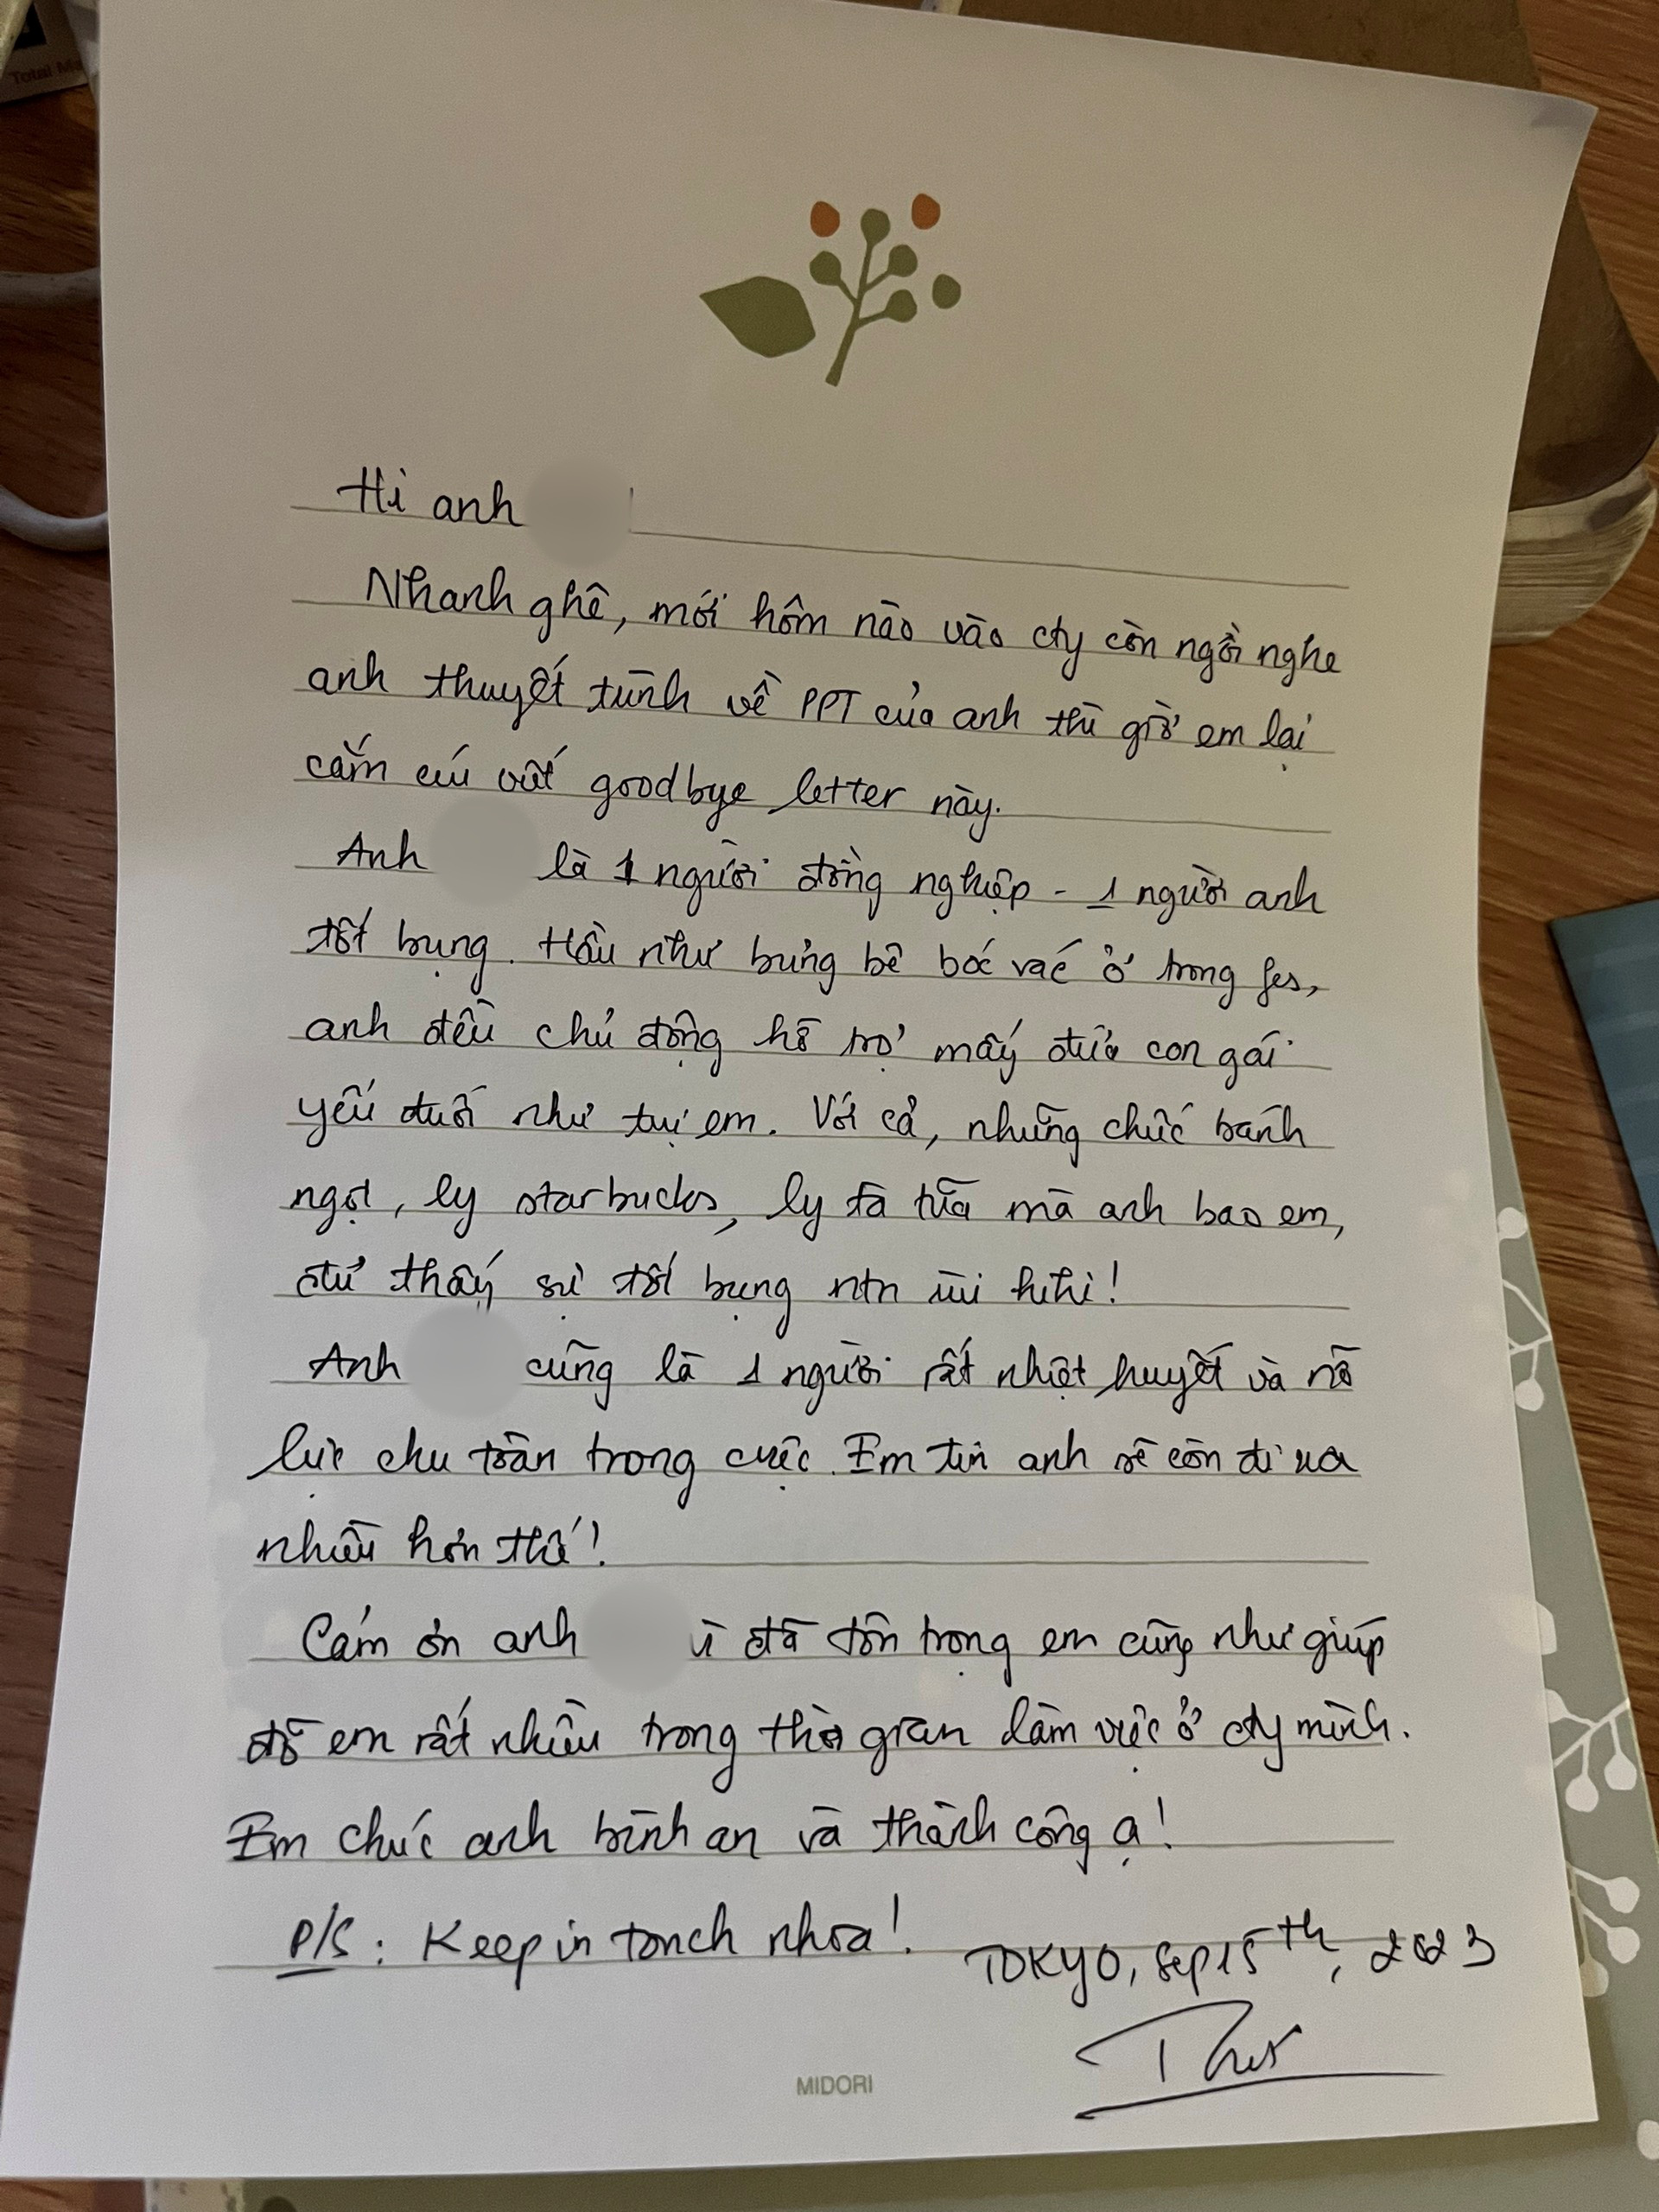 Total Ma
Hi anh !
Nhanh ghê, mới hôm nào vào cty còn ngồi nghe
anh thuyết trình về PPT của anh thì giờ em lại
cắm cúi viết goodbye letter này.
Anh là 1 người đồng nghiệp - 1 người anh
tốt bụng. Hầu như bưng bê bốc vác ở trong fes,
anh đều chủ động hỗ trợ mấy đứa con gái
yếu đuối như tụi em. Với cả, những chiếc bánh
ngọt, ly starbucks, ly trà sữa mà anh bao em,
đủ thấy sự tốt bụng ntn ùi hihi!
Anh cũng là 1 người rất nhiệt huyết và nỗ
lực chu toàn trong cviệc. Em tin anh sẽ còn đi xa
nhiều hơn thế!
Cám ơn anh vì đã tôn trọng em cũng như giúp
đỡ em rất nhiều trong thời gian làm việc ở cty mình.
Em chúc anh bình an và thành công ạ!
P/S: Keep in touch nhoa!
TOKYO, Sep 15th, 2023
MIDORI